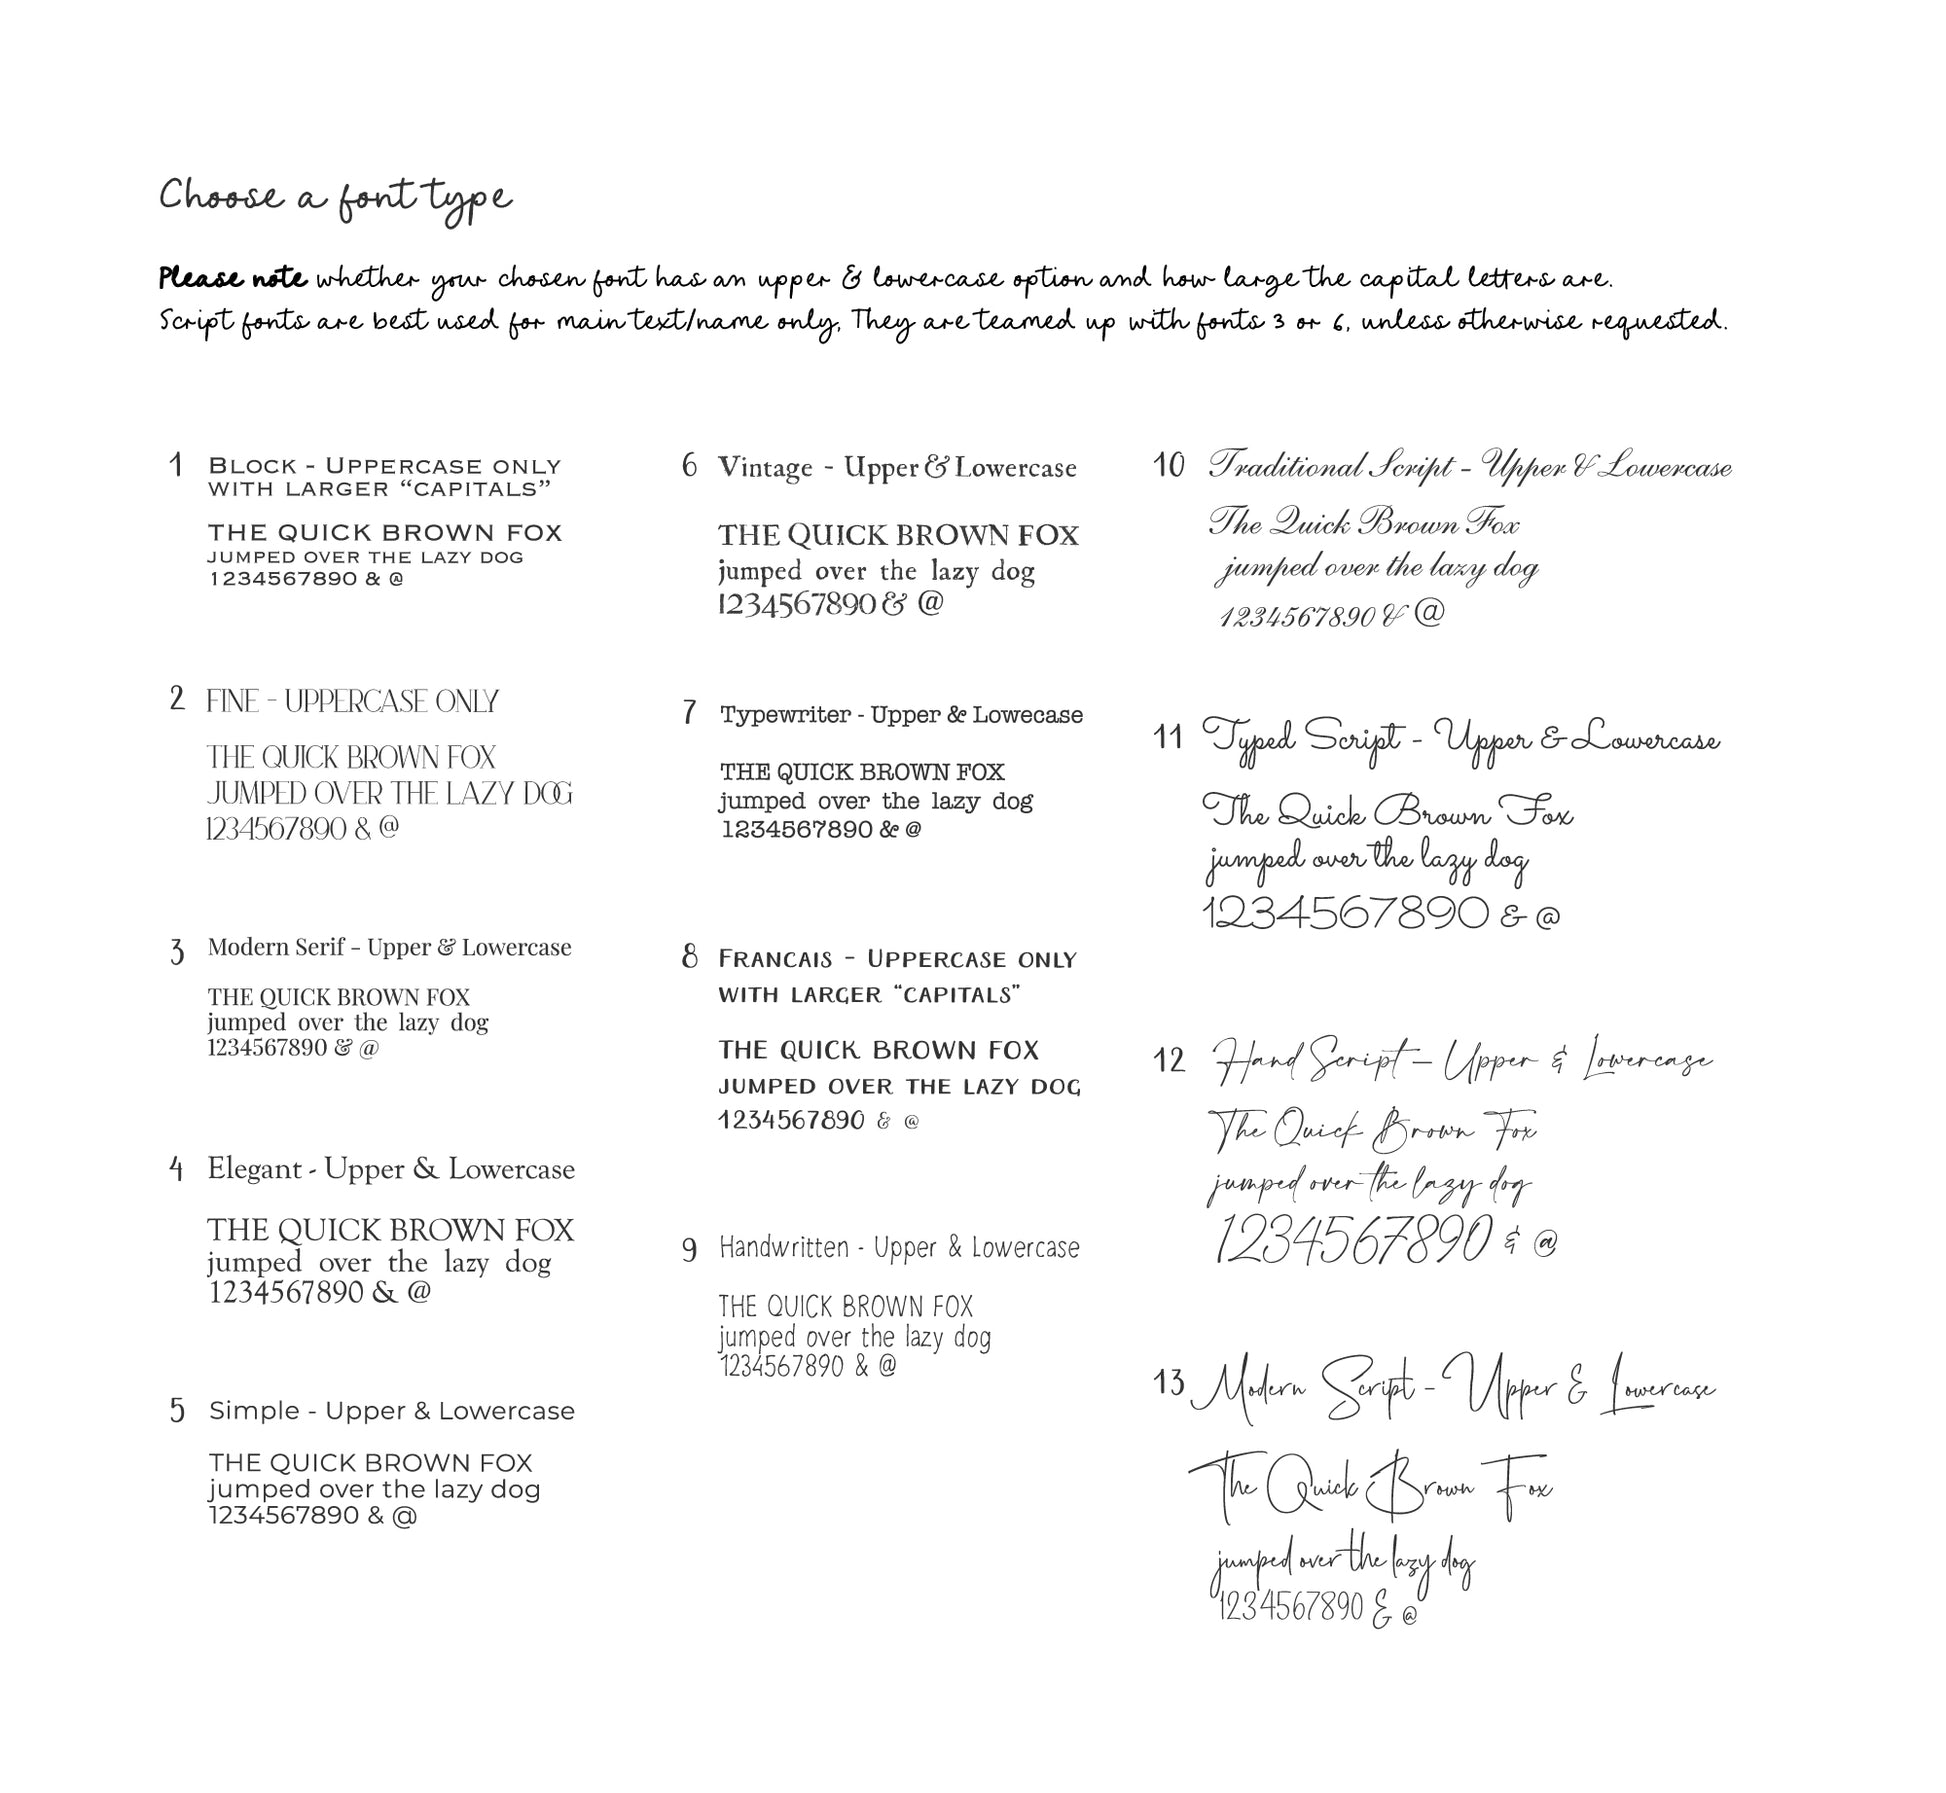 Choose a font type
Please note whether your chosen font has an upper & lowercase option and how large the capital letters are.
Script fonts are best used for main text/name only, They are teamed up with fonts 3 or 6, unless otherwise requested.
1 BLOCK - UPPERCASE ONLY
WITH LARGER “CAPITALS”
THE QUICK BROWN FOX
JUMPED OVER THE LAZY DOG
1234567890 & @
2 FINE - UPPERCASE ONLY
THE QUICK BROWN FOX
JUMPED OVER THE LAZY DOG
1234567890 & @
3 Modern Serif - Upper & Lowercase
THE QUICK BROWN FOX
jumped over the lazy dog
1234567890 & @
4 Elegant - Upper & Lowercase
THE QUICK BROWN FOX
jumped over the lazy dog
1234567890 & @
5 Simple - Upper & Lowercase
THE QUICK BROWN FOX
jumped over the lazy dog
1234567890 & @
6 Vintage - Upper & Lowercase
THE QUICK BROWN FOX
jumped over the lazy dog
1234567890 & @
7 Typewriter - Upper & Lowecase
THE QUICK BROWN FOX
jumped over the lazy dog
1234567890 & @
8 FRANCAIS - UPPERCASE ONLY
WITH LARGER “CAPITALS”
THE QUICK BROWN FOX
JUMPED OVER THE LAZY DOG
1234567890 & @
9 Handwritten - Upper & Lowercase
THE QUICK BROWN FOX
jumped over the lazy dog
1234567890 & @
10 Traditional Script - Upper & Lowercase
The Quick Brown Fox
jumped over the lazy dog
1234567890 & @
11 Typed Script - Upper & Lowercase
The Quick Brown Fox
jumped over the lazy dog
1234567890 & @
12 Hand Script - Upper & Lowercase
The Quick Brown Fox
jumped over the lazy dog
1234567890 & @
13 Modern Script - Upper & Lowercase
The Quick Brown Fox
jumped over the lazy dog
1234567890 & @